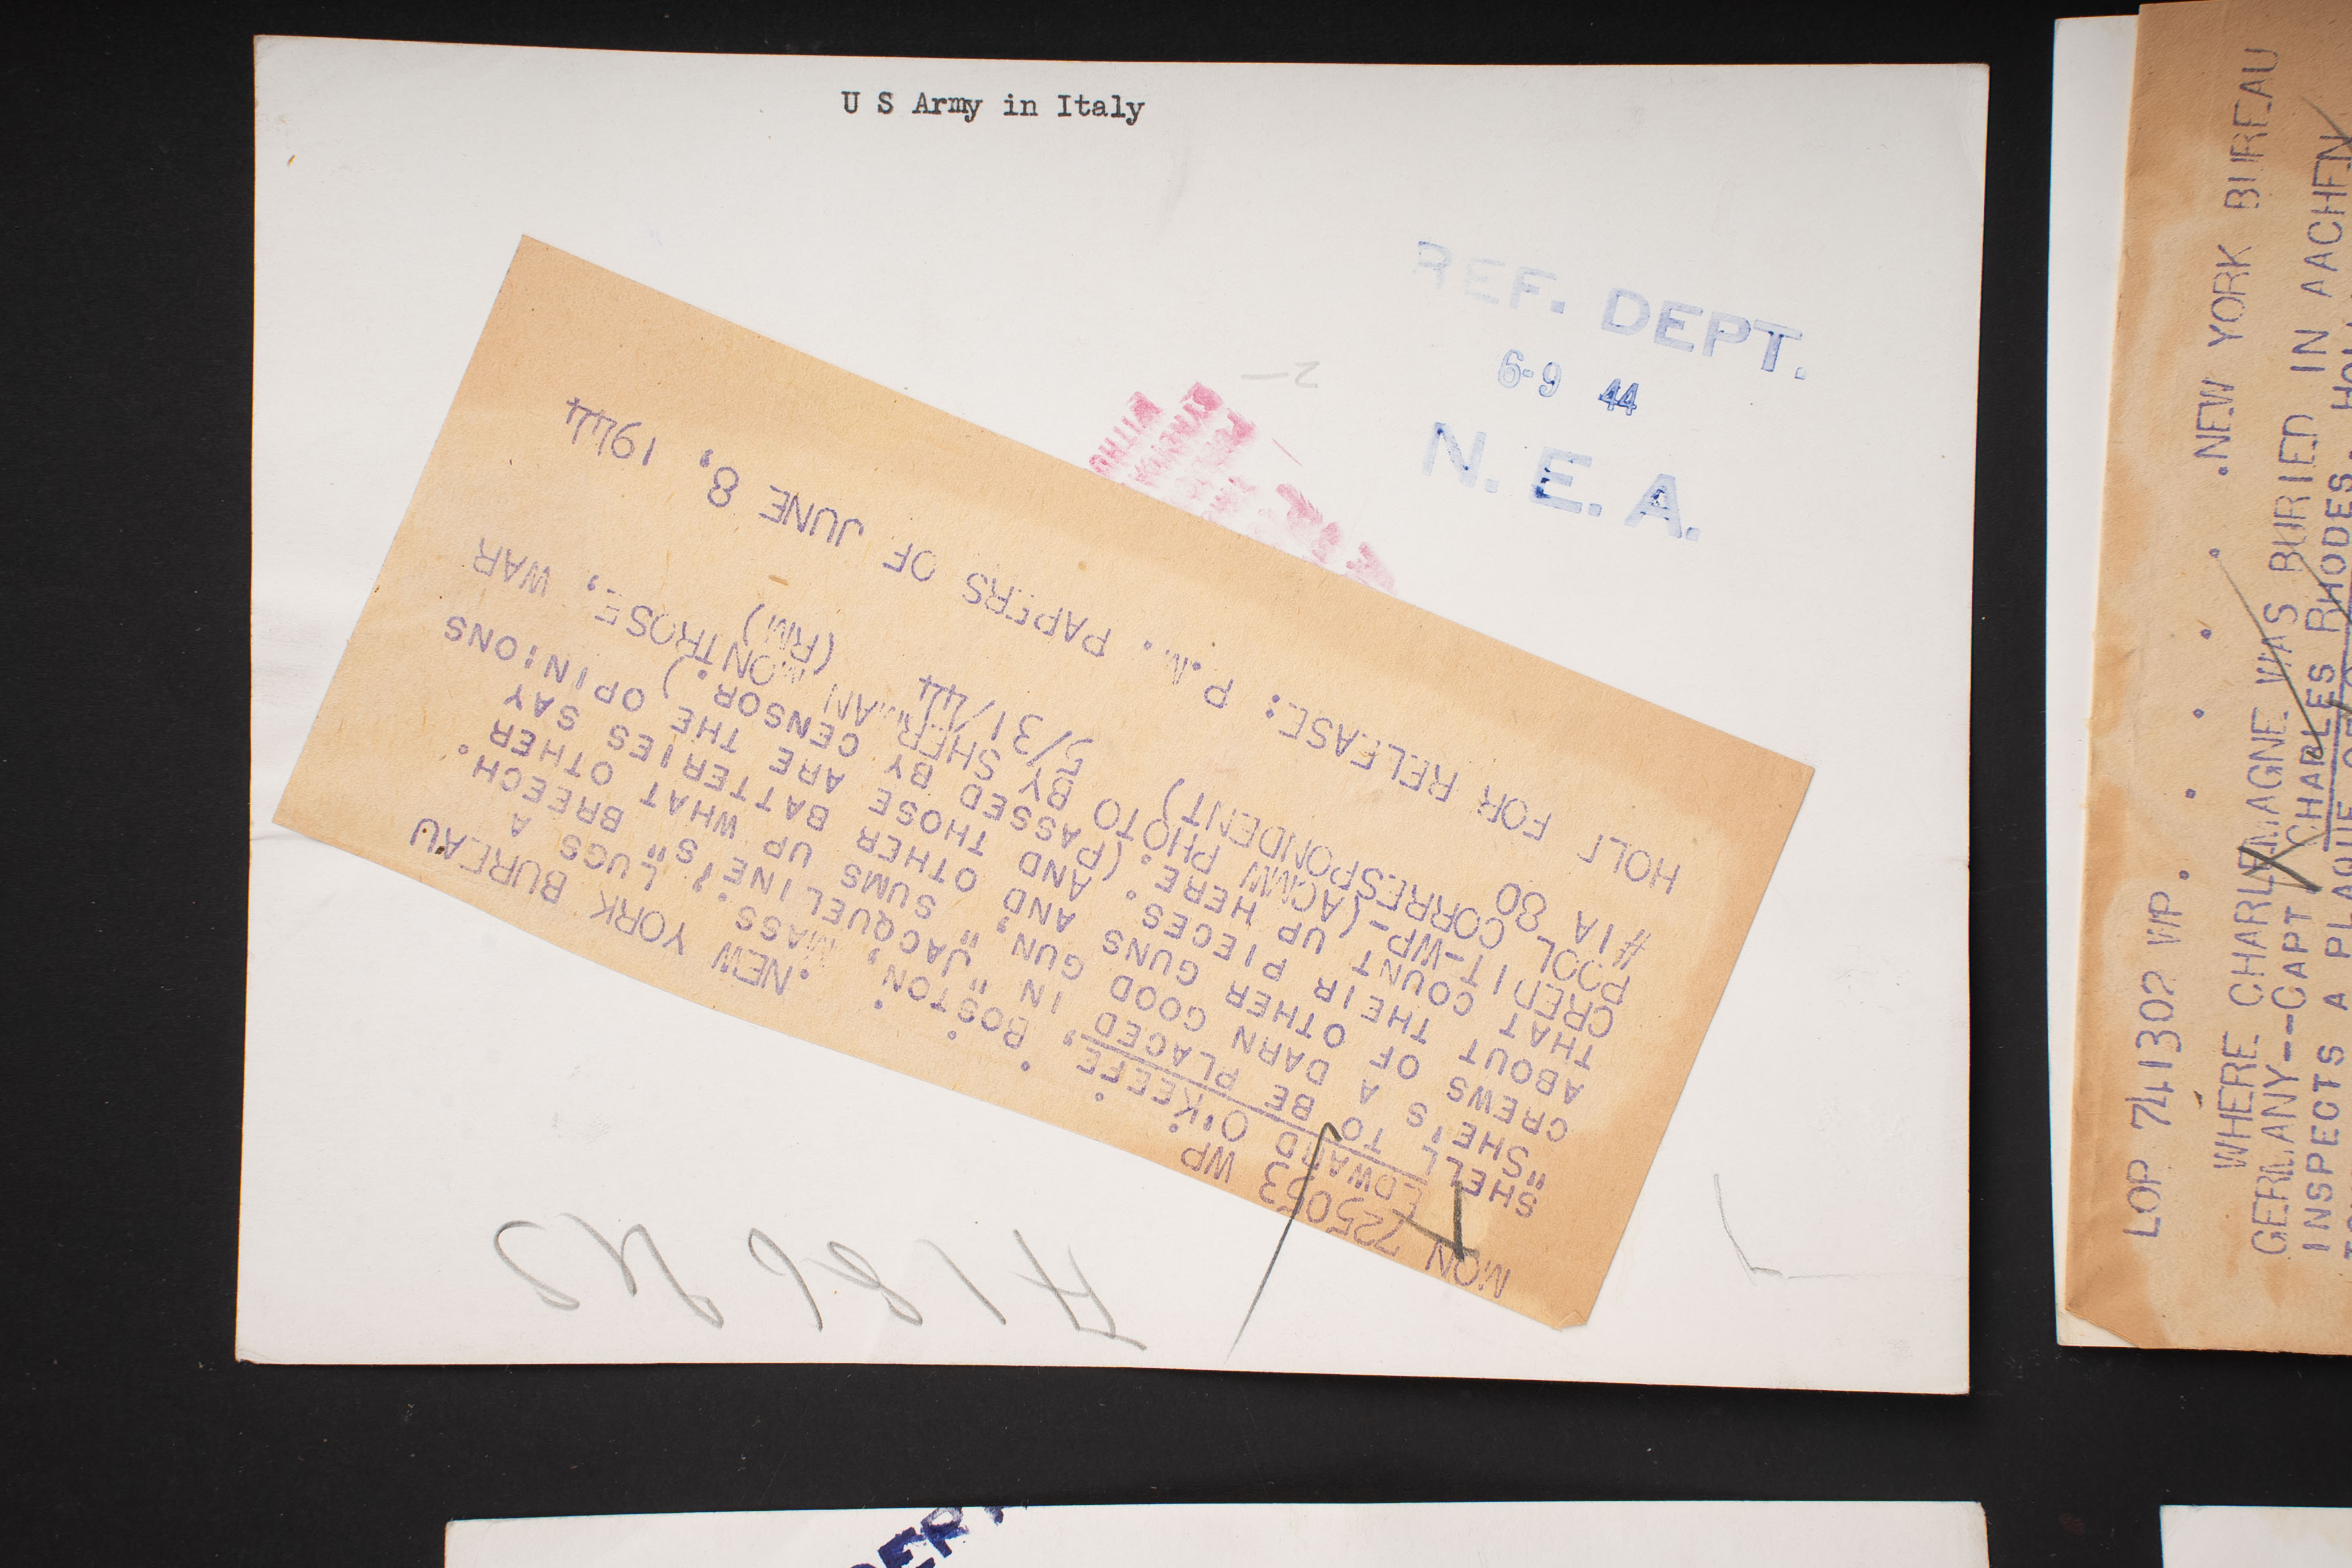 U S Army in Italy
REF. DEPT.
6-9 44
N. E. A.
MON 725053 WP . . . . .NEW YORK BUREAU
EDWARD O'KEEFE, BOSTON, MASS. LUGS A
SHELL TO BE PLACED IN "JACQUELINE'S" BREECH.
"SHE'S A DARN GOOD GUN," SUMS UP WHAT OTHER
CREWS OF OTHER GUNS AND OTHER BATTERIES SAY
ABOUT THEIR PIECES. AND THOSE ARE THE OPINIONS
THAT COUNT UP HERE. (PASSED BY CENSOR.)
CREDIT-WP-(ACMW PHOTO BY SHERMAN MONTROSE, WAR
POOL CORRESPONDENT)
#1A 80 5/31/44 (RM)
HOLD FOR RELEASE: P.M. PAPERS OF JUNE 8, 1944
LOP 741302 WP. . . . . .NEW YORK BUREAU
WHERE CHARLEMAGNE WAS BURIED IN AACHEN
GERMANY--CAPT CHARLES RHODES,
INSPECTS A PLAQUE